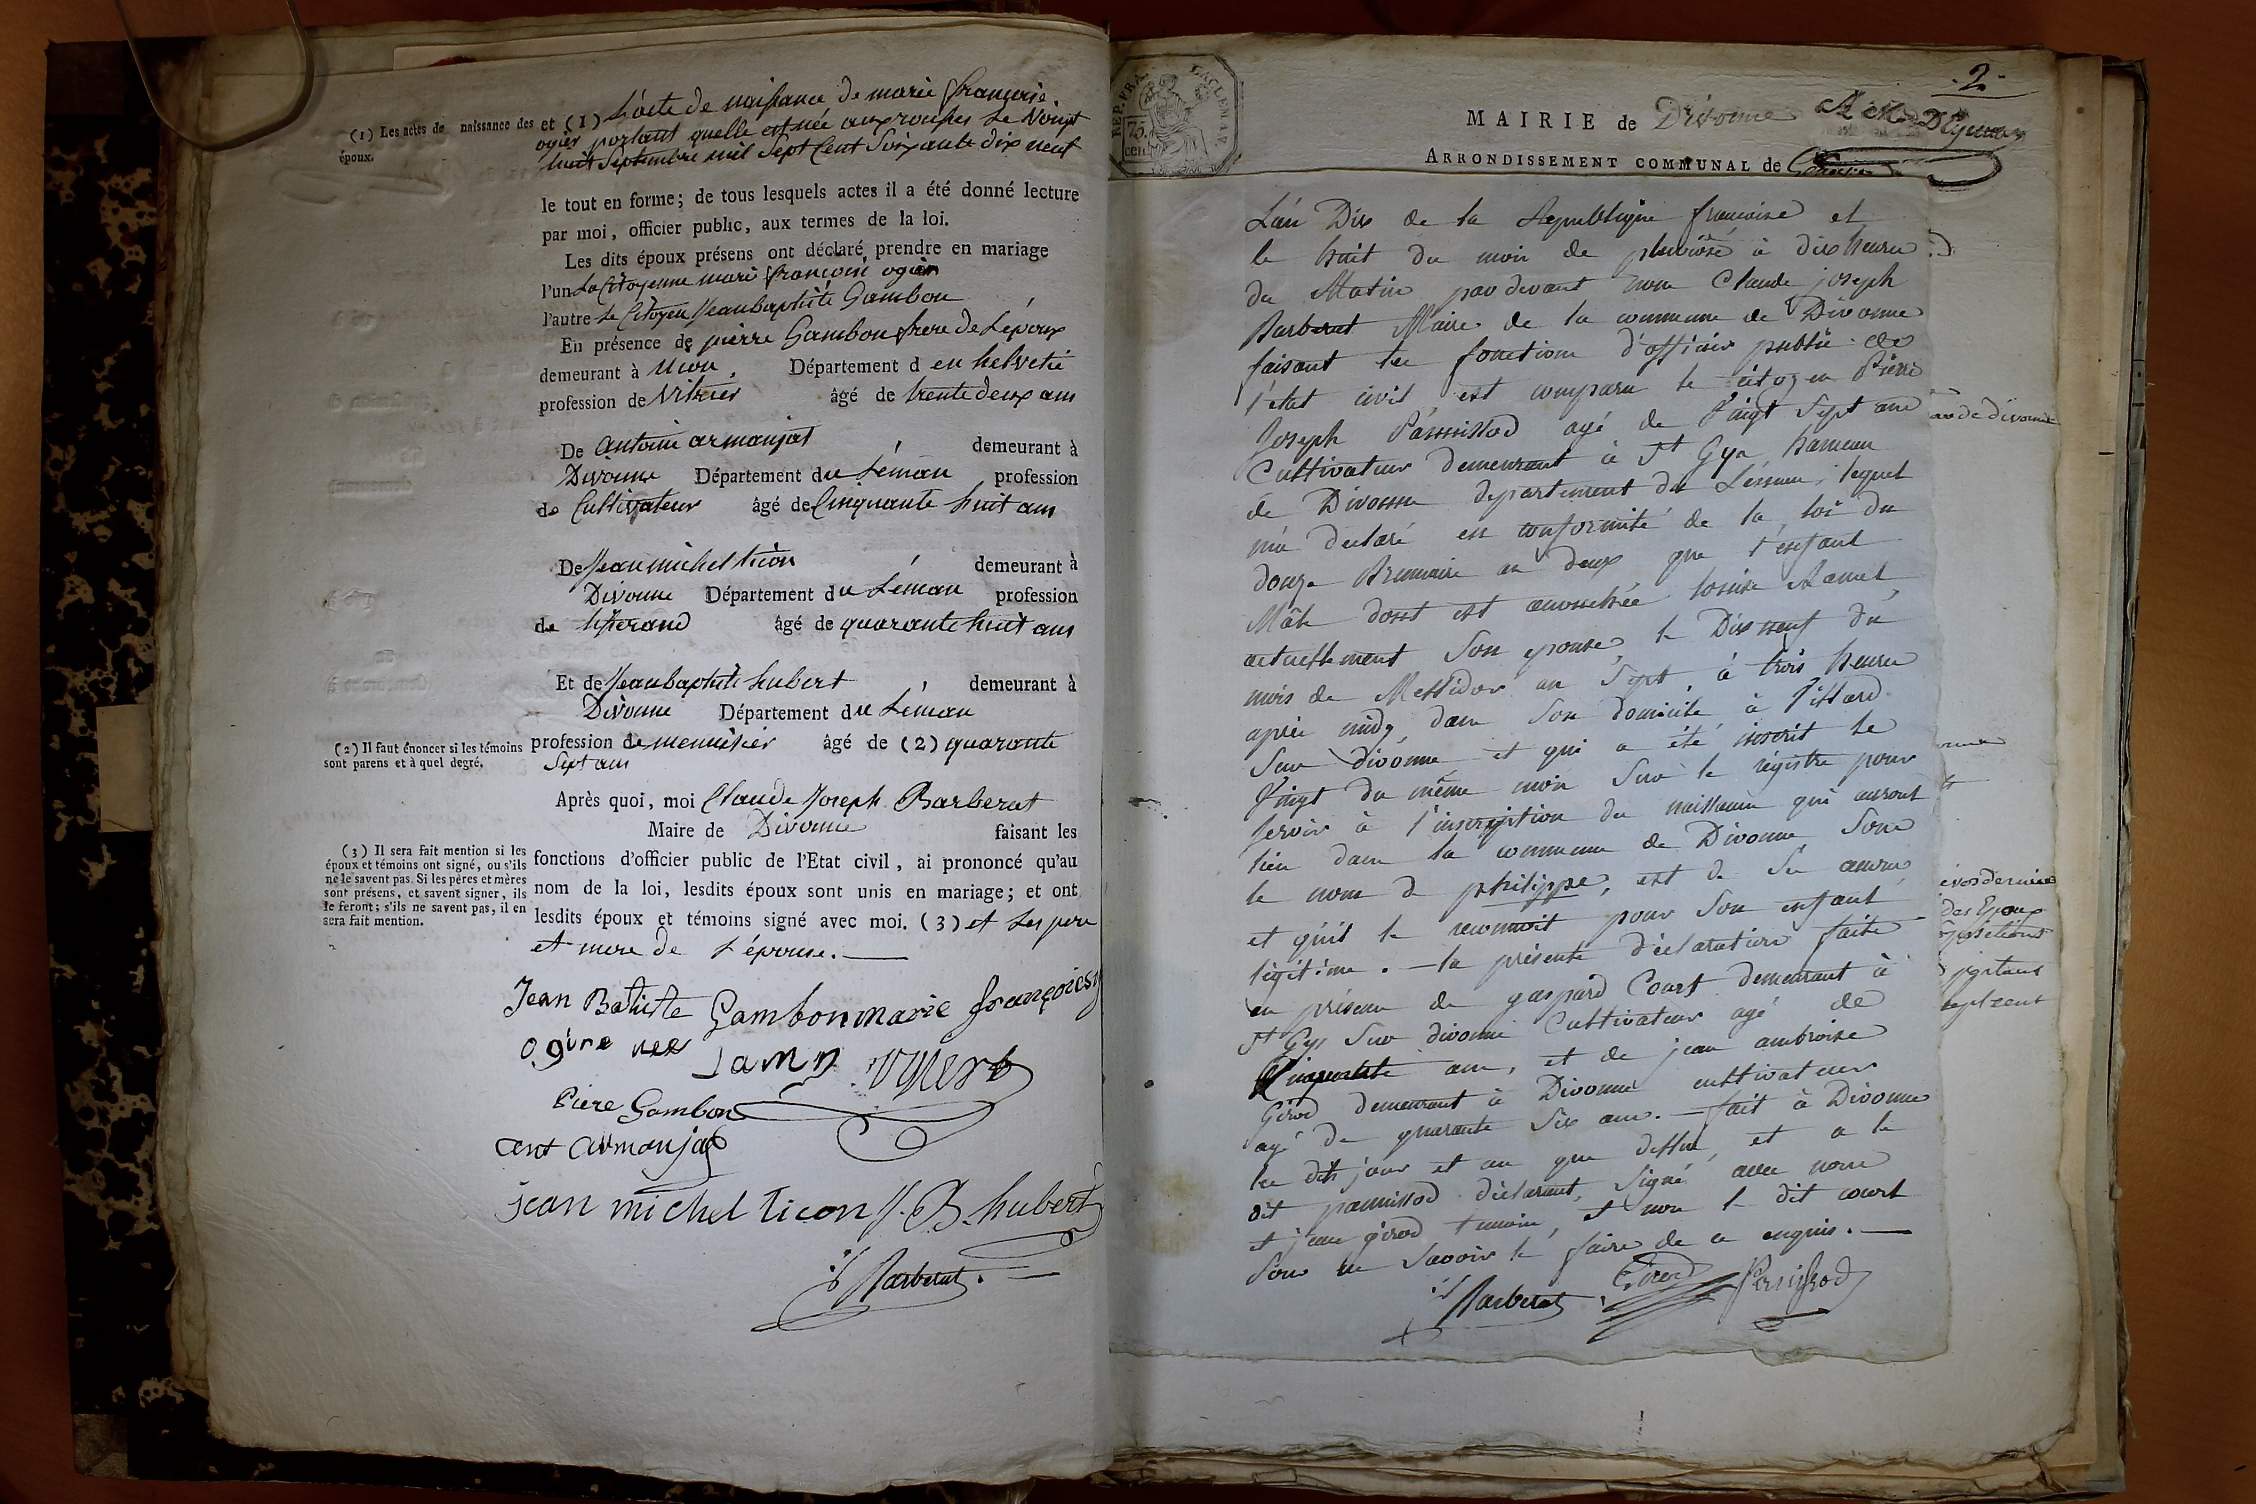 (1) Les actes de naissance des
époux.
et (1) L'acte de naissance de marie françoise
ogier portant quelle est née aux rousses le Vingt
huit Septembre mil Sept Cent Soixante dix neuf
le tout en forme; de tous lesquels actes il a été donné lecture
par moi, officier public, aux termes de la loi.
Les dits époux présens ont déclaré prendre en mariage
l'un La Citoyenne marie françoise ogier
l'autre Le Citoyen Jean baptiste Gambon
En présence de pierre Gambon frere de Lepoux
demeurant à Nion, Département d en helvetie
profession de Vitrier âgé de trente deux ans
De antoine armanjat demeurant à
Divonne Département du Léman profession
de Cultivateur âgé de Cinquante huit ans
De Jean michel ticon demeurant à
Divonne Département du Léman profession
de tisserand âgé de quarante huit ans
Et de Jean baptiste hubert demeurant à
Divonne Département du Léman
(2) Il faut énoncer si les témoins
sont parens et à quel degré.
profession de menuisier âgé de (2) quarante
Sept ans
Après quoi, moi Claude Joseph Barberat
Maire de Divonne faisant les
(3) Il sera fait mention si les
époux et témoins ont signé, ou s'ils
ne le savent pas. Si les pères et mères
sont présens, et savent signer, ils
le feront; s'ils ne savent pas, il en
sera fait mention.
fonctions d'officier public de l'Etat civil, ai prononcé qu'au
nom de la loi, lesdits époux sont unis en mariage; et ont
lesdits époux et témoins signé avec moi. (3) et Les pere
et mere de L'épouse.
Jean Batiste Gambon marie françoise
ogire
Piere Gambon
ant armanjat
jean michel ticon J. B. hubert
Barberat
2
REP. FRA.
75
cen
MAIRIE de Divonne
ARRONDISSEMENT COMMUNAL de
L'an Dix de la Republique francoise et
le huit du mois de pluviose à dix heures
du Matin pardevant nous Claude joseph
Barberat Maire de la commune de Divonne
faisant les fonctions d'officier public de
l'etat civil est comparu le citoyen Pierre
Joseph agé de Vingt Sept ans
Cultivateur demeurant à St Gyx hameau
de Divonne departement du Léman, lequel
m'a declaré en conformité de la loi du
douze Brumaire an deux que l'enfant
Mâle dont est accouchée louise Ramel
actuellement Son epouse, le Dix neuf du
mois de Messidor an Sept, à trois heures
après midy, dans Son domicile à Villard
Sur divonne et qui a été inscrit le
Vingt du même mois Sur le régistre pour
servir à l'inscription des naissances qui auront
lieu dans la commune de Divonne, Sous
le nom de philippe, est de Ses œuvres
et qu'il le reconnoit pour Son enfant
légitime. — la présente déclaration faite
en présence de gaspard Court demeurant à
St Gyx Sur divonne Cultivateur agé de
Cinquante ans, et de jean ambroise
Girod demeurant à Divonne cultivateur
agé de quarante Six ans. — fait à Divonne
les dits jour et an que dessus, et a le
dit panissod déclarant, Signé avec nous
et jean girod temoin, et non le dit court
pour ne Savoir le faire de ce enquis. —
Barberat Girod Panissod
de divonne
des Epoux
portant
sept cent